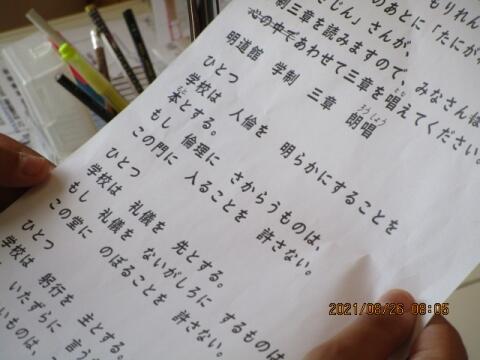 のあとに「たにが
じん」さんが
制三章を読みますので、みなさんは
心の中であわせて三章を唱えてください。
明道館 学制 三章 朗唱
ひとつ
学校は 人倫を 明らかにすることを
本とする。
もし 倫理に さからうものは、
この門に 入ることを 許さない。
ひとつ
学校は 礼儀を 先とする。
もし 礼儀を ないがしろに するものは
この堂に のぼることを 許さない。
ひとつ
学校は 躬行を 主とする。
いたずらに 言う
ないものは、こ
2021/08/26 08:05